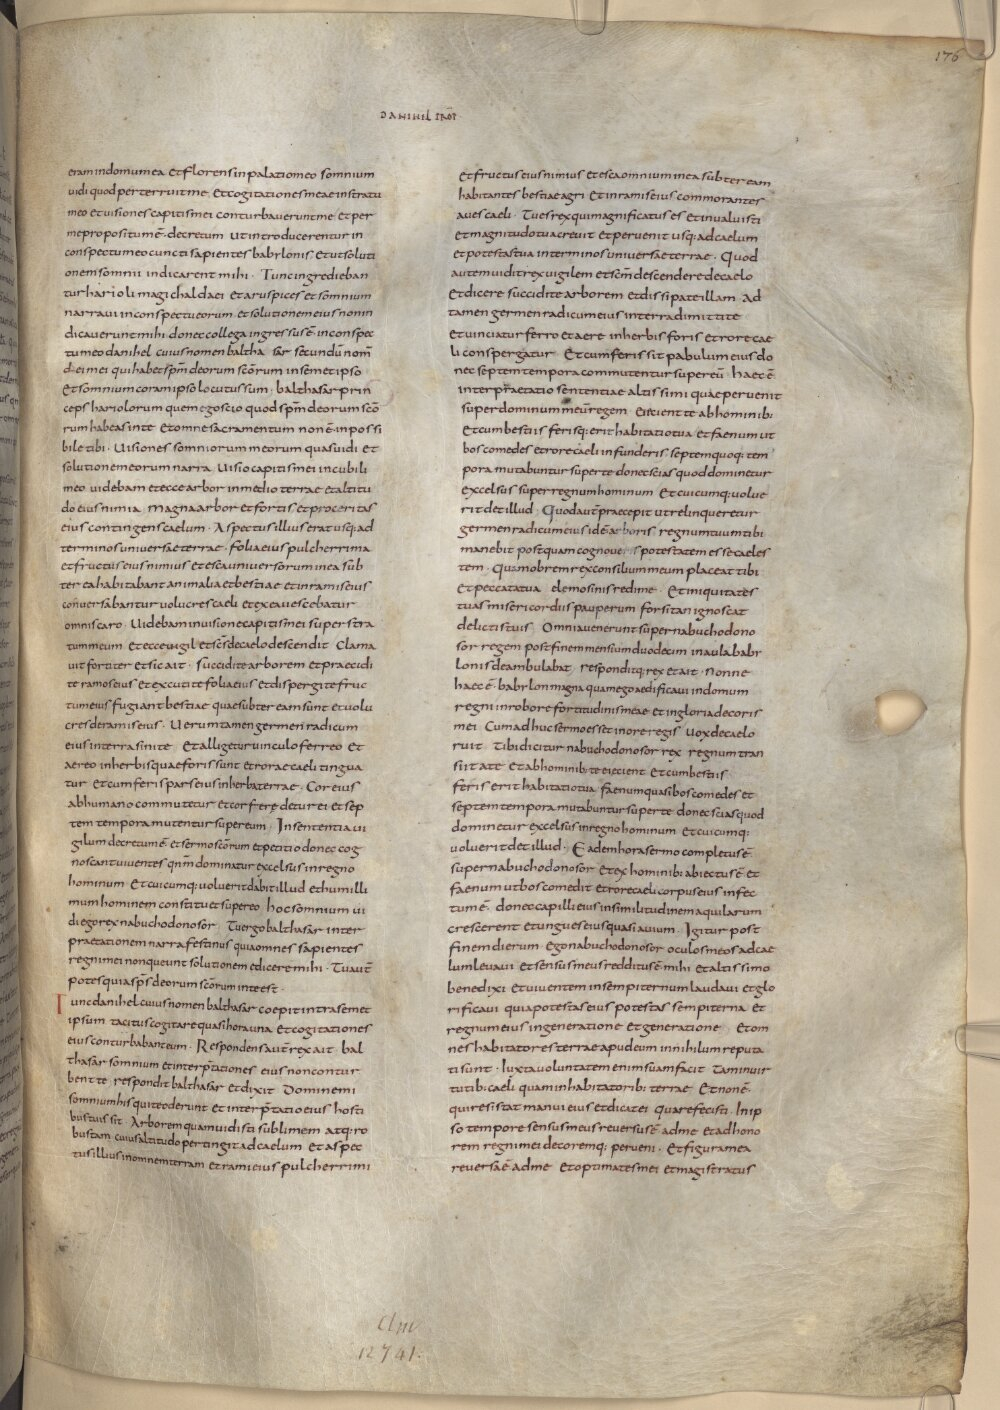 176
DANIHEL PROF
eram in domu mea et florens in palatio meo somnium
vidi quod perterruit me et cogitationes meae in stratu
meo et visiones capitis mei conturbaverunt me et per
me propositum ē decretum ut introducerentur in
conspectu meo cuncti sapientes babylonis et ut soluti
onem somnii indicarent mihi · Tunc ingredieban
tur harioli magi chaldaei et aruspices et somnium
narravi in conspectu eorum et solutionem eius non in
dicaverunt mihi donec collega ingressus ē in conspec
tu meo danihel cuius nomen baltha sar secundū nom̄
dei mei qui habet sp̄m deorum scōrum in semet ipso
Et somnium coram ipso locutus sum · balthasar prin
ceps hariolorum quem ego scio quod sp̄m deorum scō
rum habeas in te et omne sacramentum non ē inpossi
bile tibi · Visiones somniorum meorum quas vidi et
solutionem eorum narra Visio capitis mei in cubili
meo videbam et ecce arbor in medio terrae et altitu
do eius nimia · Magna arbor et fortis et proceritas
eius contingens caelum · Aspectus illius erat usq; ad
terminos universae terrae · folia eius pulcherrima
et fructus eius nimius et esca universorum in ea sub
ter ea habitabant animalia et bestiae et in ramis eius
conversabantur volucres caeli et ex ea vescebatur
omnis caro · Videbam in visione capitis mei super stra
tum meum et ecce vigil et scs̄ de caelo descendit Clama
vit fortiter et sic ait · succidite arborem et praecidi
te ramos eius et excutite folia eius et dispergite fruc
tum eius fugiant bestiae quae subter eam sunt et volu
cres de ramis eius · Verumtamen germen radicum
eius in terra sinite Et alligetur vinculo ferreo et
aereo in herbis quae foris sunt et rorae caeli tingua
tur et cum feris pars eius in herba terrae · Cor eius
ab humano commutetur et cor ferę detur ei et sep
tem tempora mutentur super eum · In sententia vi
gilum decretum ē et sermo scōrum et petitio donec cog
noscant viventes qn̄m dominatur excelsus in regno
hominum Et cuicumq; voluerit dabit illud et humilli
mum hominem constituet super eo hoc somnium vi
di ego rex nabuchodonosor Tu ergo balthasar inter
praetationem narra festinus quia omnes sapientes
regni mei non queunt solutionem edicere mihi · Tu aut̄
potes quia sp̄s deorum scōrum in te est ·
Tunc danihel cuius nomen balthasar coepit intra semet
ipsum tacitus cogitare quasi hora una et cogitationes
eius conturbabant eum · Respondens aut̄ rex ait bal
thasar somnium et interp̄tationes eius non contur
bent te respondit balthasar et dixit Domine mi
somnium his qui te oderunt et interp̄tatio eius hosti
bus tuis sit Arborem quam vidisti sublimem atq; ro
bustam cuius altitudo pertingit ad caelum et aspec
tus illius in omnem terram et rami eius pulcherrimi
et fructus eius nimius et esca omnium in ea subter eam
habitantes bestiae agri et in ramis eius commorantes
aves caeli · Tu es rex qui magnificatus es et invaluisti
et magnitudo tua crevit et pervenit usq; ad caelum
et potestas tua in terminos universae terrae · Quod
autem vidit rex vigilem et scm̄ descendere de caelo
Et dicere succidite arborem et dissipate illam Ad
tamen germen radicum eius in terra dimittite
et vinciatur ferro et aere in herbis foris et rore cae
li conspergatur Et cum feris sit pabulum eius do
nec septem tempora commutentur super eū · haec ē
interpraetatio sententiae altissimi quae pervenit
super dominum meum regem Eiecient te ab hominib;
Et cum bestiis ferisq; erit habitatio tua et faenum ut
bos comedes et rore caeli infunderis septem quoq; tem
pora mutabuntur super te donec scias quod dominetur
excelsus super regnum hominum Et cuicumq; volue
rit det illud · Quod aut̄ praecepit ut relinqueretur
germen radicum eius id ē arboris regnum tuum tibi
manebit postquam cognoveris potestatem esse caeles
tem · Quamobrem rex consilium meum placeat tibi
et peccata tua elemosinis redime · Et iniquitates
tuas misericordiis pauperum forsitan ignoscat
delictis tuis Omnia venerunt super nabuchodono
sor regem post finem mensium duodecim in aula baby
lonis deambulabat responditq; rex et ait · Nonne
haec ē babylon magna quam ego aedificavi in domum
regni in robore fortitudinis meae et in gloria decoris
mei Cum adhuc sermo esset in ore regis vox de caelo
ruit Tibi dicitur nabuchodonosor rex regnum tran
siit a te et ab hominib; te eiecient Et cum bestiis
feris erit habitatio tua faenum quasi bos comedes et
septem tempora mutabuntur super te donec scias quod
dominetur excelsus in regno hominum Et cuicumq;
voluerit det illud · Eadem hora sermo completus ē
super nabuchodonosor Et ex hominib; abiectus ē et
faenum ut bos comedit et rore caeli corpus eius infec
tum ē · donec capilli eius in similitudinem aquilarum
crescerent et ungues eius quasi avium · Igitur post
finem dierum Ego nabuchodonosor oculos meos ad cae
lum levavi Et sensus meus redditus ē mihi Et altissimo
benedixi Et viventem in sempiternum laudavi et glo
rificavi quia potestas eius potestas sempiterna Et
regnum eius in generatione et generatione Et om
nes habitatores terrae apud eum in nihilum reputa
ti sunt · Iuxta voluntatem enim suam facit Tam in vir
tutib; caeli quam in habitatorib; terrae Et non ē
qui resistat manui eius et dicat ei quare fecisti · In ip
so tempore sensus meus reversus ē ad me et ad hono
rem regni mei decoremq; perveni · Et figura mea
reversa ē ad me Et optimates mei et magistratus
Clm
12741.